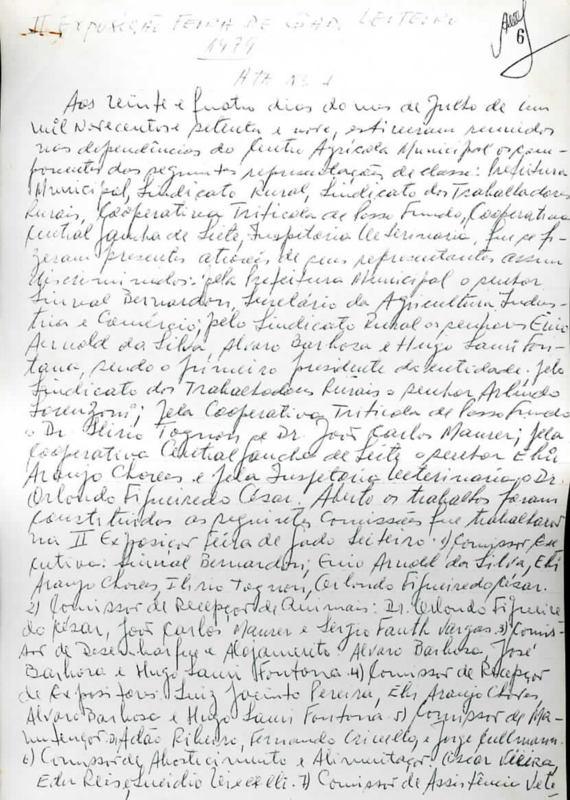 II EXPOSIÇÃO FEIRA DE GADO LEITEIRO
1979
6
ATA Nº 1
Aos vinte e quatro dias do mes de Julho de um
mil novecentos e setenta e nove, estiveram reunidos
nas dependências do Centro Agrícola Municipal os com-
ponentes das seguintes representações de classe: Prefeitura
Municipal, Sindicato Rural, Sindicato dos Trabalhadores
Rurais, Cooperativa Tritícola de Passo Fundo, Cooperativa
Central Gaucha de Leite, Inspetoria Veterinaria, que se fi-
zeram presentes através de seus representantes assim
discriminados: pela Prefeitura Municipal o senhor
Sinval Bernardon, Secretário da Agricultura Indus-
tria e Comércio; pelo Sindicato Rural os senhores Enio
Arnold da Silva, Alvaro Barbosa e Hugo Lauri Fon-
tana, sendo o primeiro presidente da entidade. pelo
Sindicato dos Trabalhadores Rurais o senhor Arlindo
Lorenzoni; pela Cooperativa Tritícola de Passo Fundo
o Dr. Ilirio Tognon e Dr. João Carlos Maurer; pela
Cooperativa Central Gaucha de Leite o senhor Eli
Araujo Chaves e pela Inspetoria Veterinaria o Dr.
Orlando Figueiredo César. Aberto os trabalhos foram
constituidos as seguintes Comissões que trabalharão
na II Exposiçõr Feira de Gado Leiteiro. 1) Comissõr Exe-
cutiva: Sinval Bernardon, Enio Arnold da Silva, Eli
Araujo Chaves, Ilirio Tognon, Orlando Figueiredo César.
2) Comissõr de Recepçõr de Animais: Dr. Orlando Figueire
do César, João Carlos Maurer e Sergio Fauth Vargas. 3) Comis-
sõr de Desembarque e Alojamento. Alvaro Barbosa, José
Barbosa e Hugo Lauri Fontana. 4) Comissõr de Recepçõr
de Expositores. Luiz Jacinto Pereira, Eli Araujo Chaves,
Alvaro Barbosa e Hugo Lauri Fontana. 5) Comissõr de Ma-
nutençõr: Adão Ribeiro, Fernando e Jorge
6) Comissõr de Abastecimento e Alimentaçõr. Oscar Vieira,
Edu Reis, 7) Comissõr de Assistência Vete